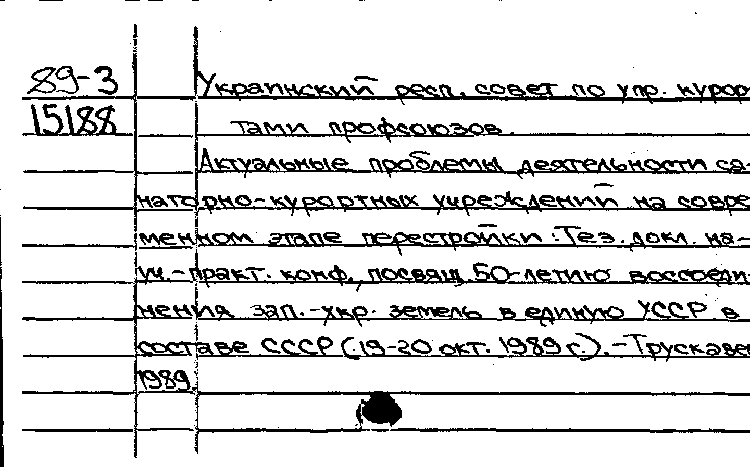 89-3 Украинский респ. совет по упр. курор
15188 тами профсоюзов.
Актуальные проблемы деятельности са-
наторно-курортных учреждений на совре
менном этапе перестройки: Тез. докл. на-
уч.-практ. конф., посвящ. 50-летию воссоеди
нения зап.-укр. земель в единую УССР в
составе СССР (19-20 окт. 1989 г.).-Трускаве
1989.